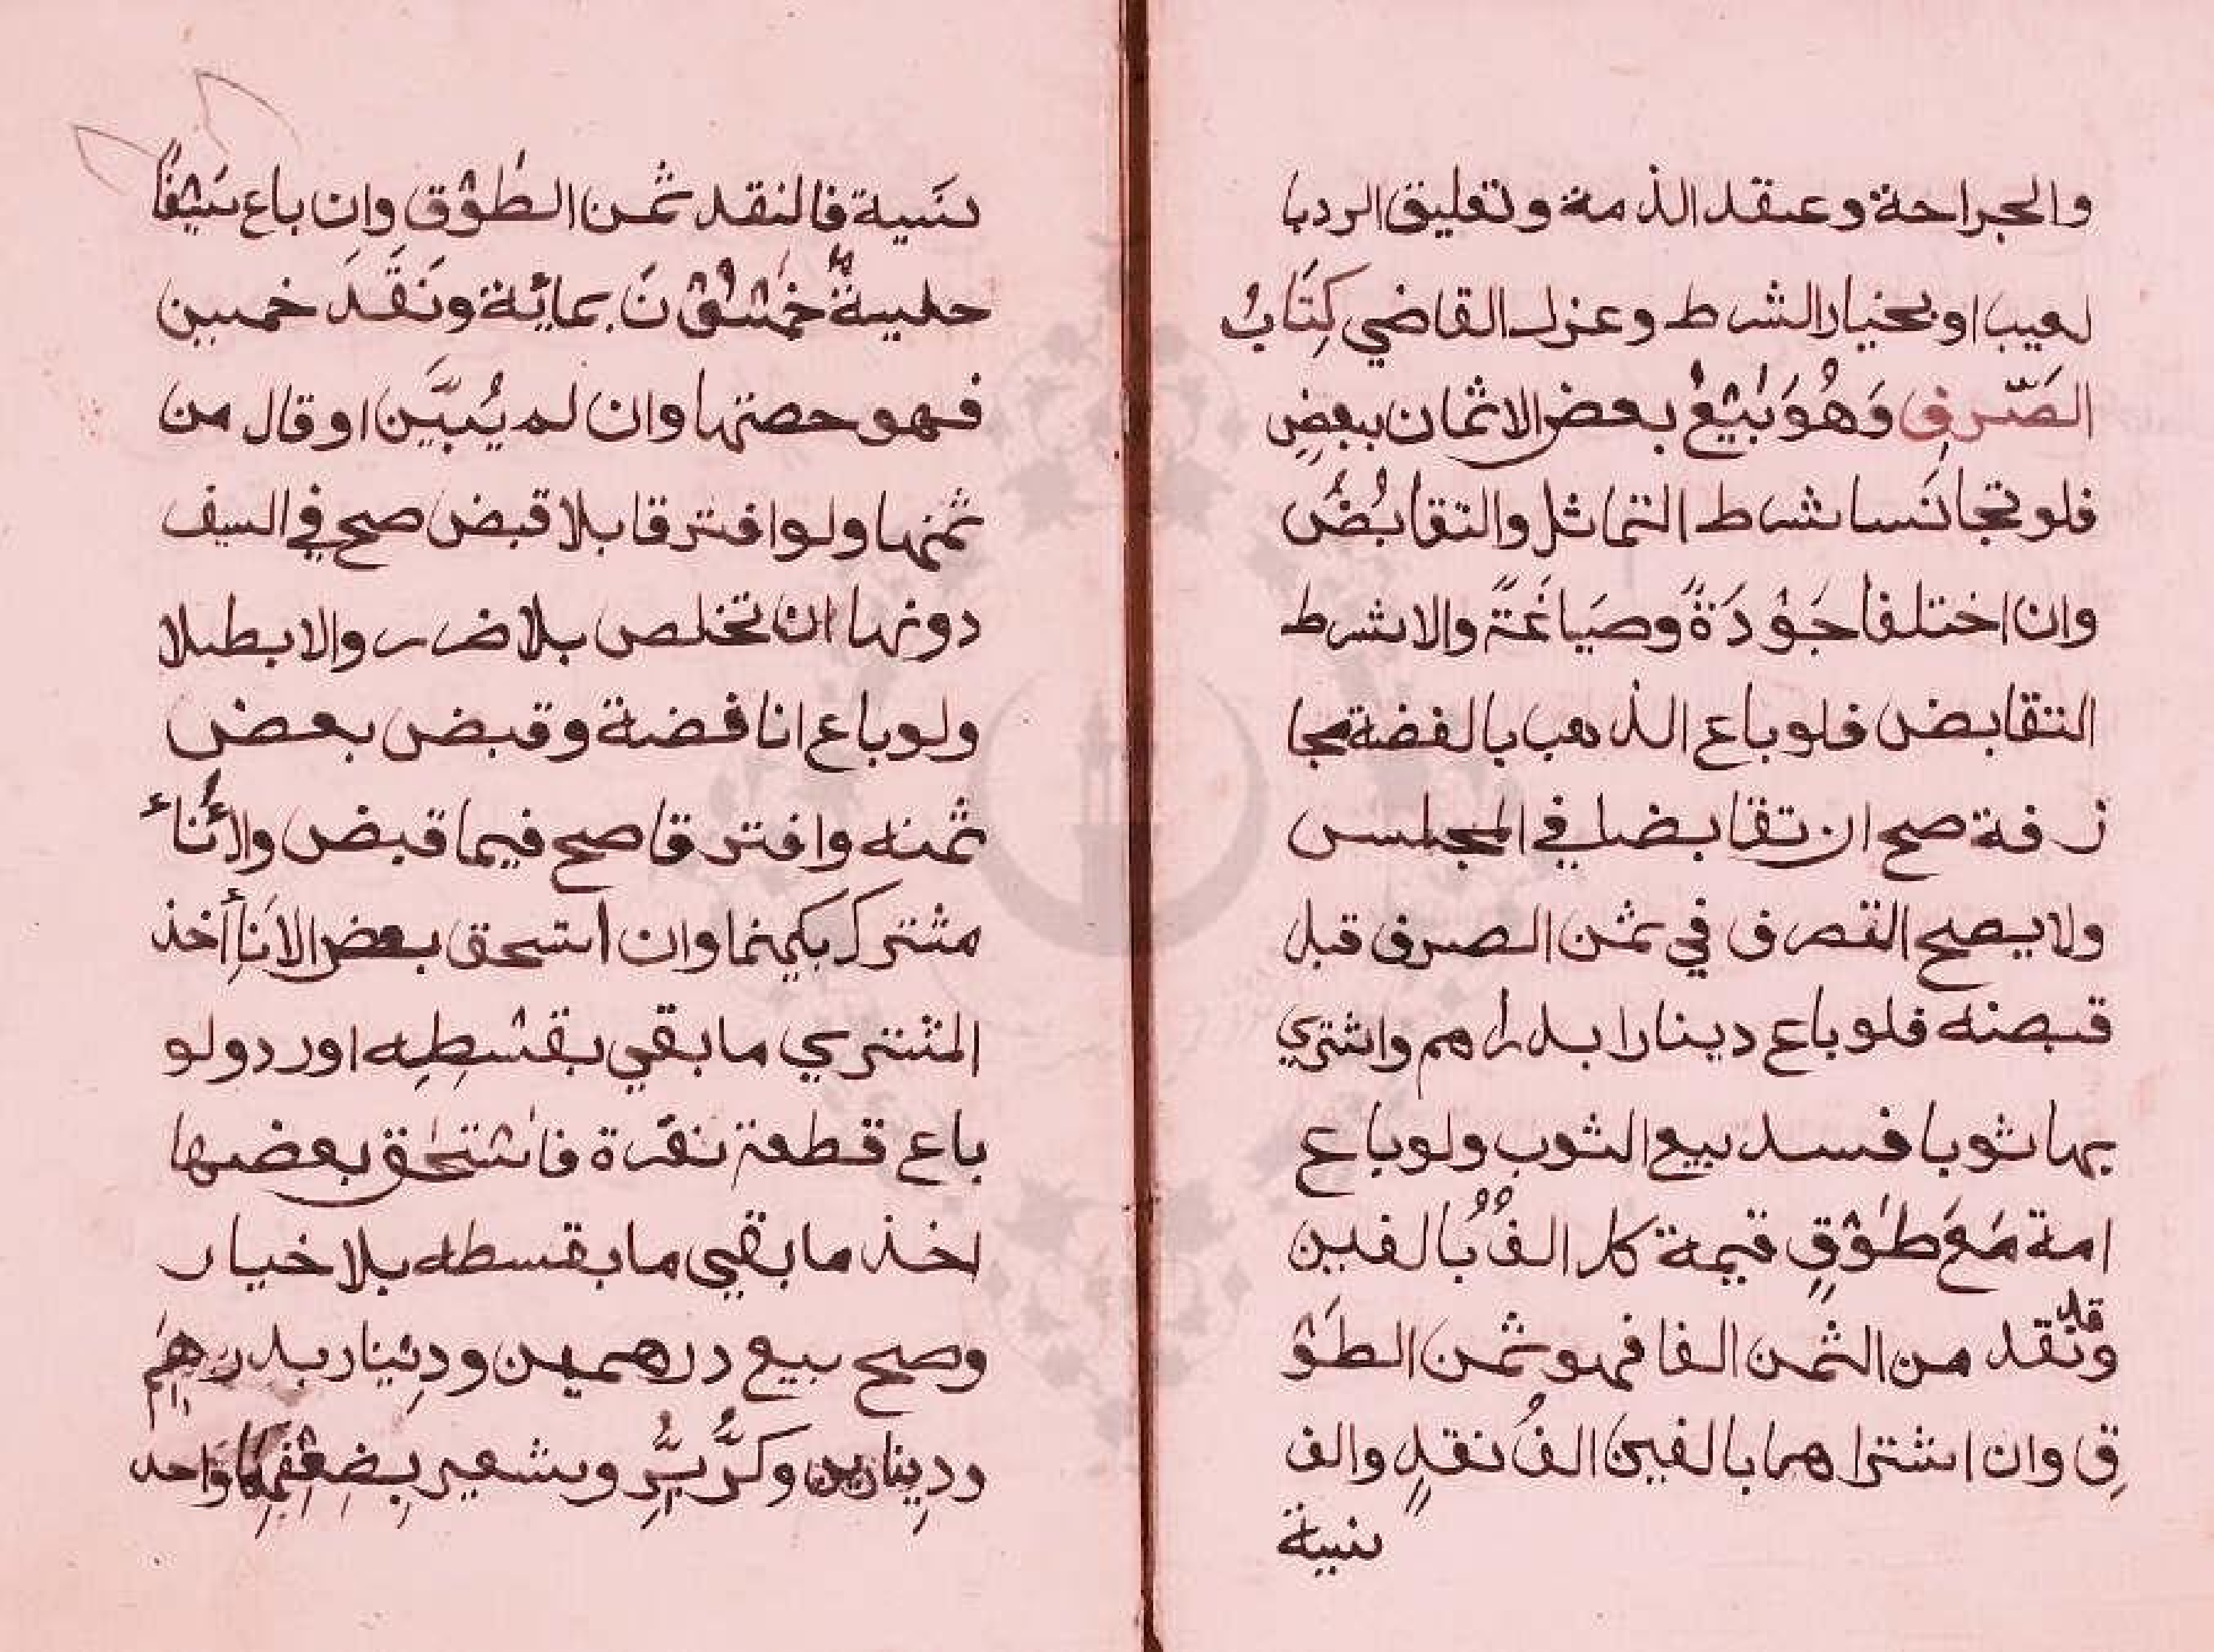 والجراحة وعقد الذمة وتعليق الرد با
لعيب او بخيار الشرط وعزل القاضي كِتَابُ
الصَّرفِ وَهُوَ بَيْعُ بعض الاثمان ببعضٍ
فلو تجانَسا شرط التماثل والتقابُضُ
وان اختلفا جَوْدَةً وصَياغَةً والا شرط
التقابض فلو باع الذهب بالفضة مجا
زفة صح ان تقابضا في المجلس
ولا يصح التصرف في ثمن الصرف قبل
قبضه فلو باع دينارا بدراهم واشتري
بها ثوبا فسد بيع الثوب ولو باع
امة مَعَ طَوْقٍ قيمة كل الفُ بالفين
قد
ونقد من الثمن الفا فهو ثمن الطَوْ
قِ وان اشتراهما بالفين الفُ نقدٍ والف
نسية
نسَية فالنقد ثمن الطَوْق وانِ باع سَيْفًا
حليةٌ خمْسُوْنَ بمائة ونَقَدَ خمسين
فهو حصتها وان لم يُبَيَّن او قال من
ثمنها ولو افترقا بلا قبض صح في السيف
دونها ان تخلص بلا ضرر والا بطلا
ولو باع انا فضة وقبض بعض
ثمنه وافترقا صح فيما قبض والأناء
مشترك بينهما وان استحق بعض الانَأِ أخذ
المشتري ما بقي بقسْطِه او رد ولو
باع قطعة نقرة فاسْتحَق بعضها
اخذ ما بقي ما بقسطه بلا خيار
وصح بيع درهمين ودِيْنار بدرهِمَ
ودِينارين وكُرِّ بُرِّ وشعير بِضِعْفِهِمَا واحد